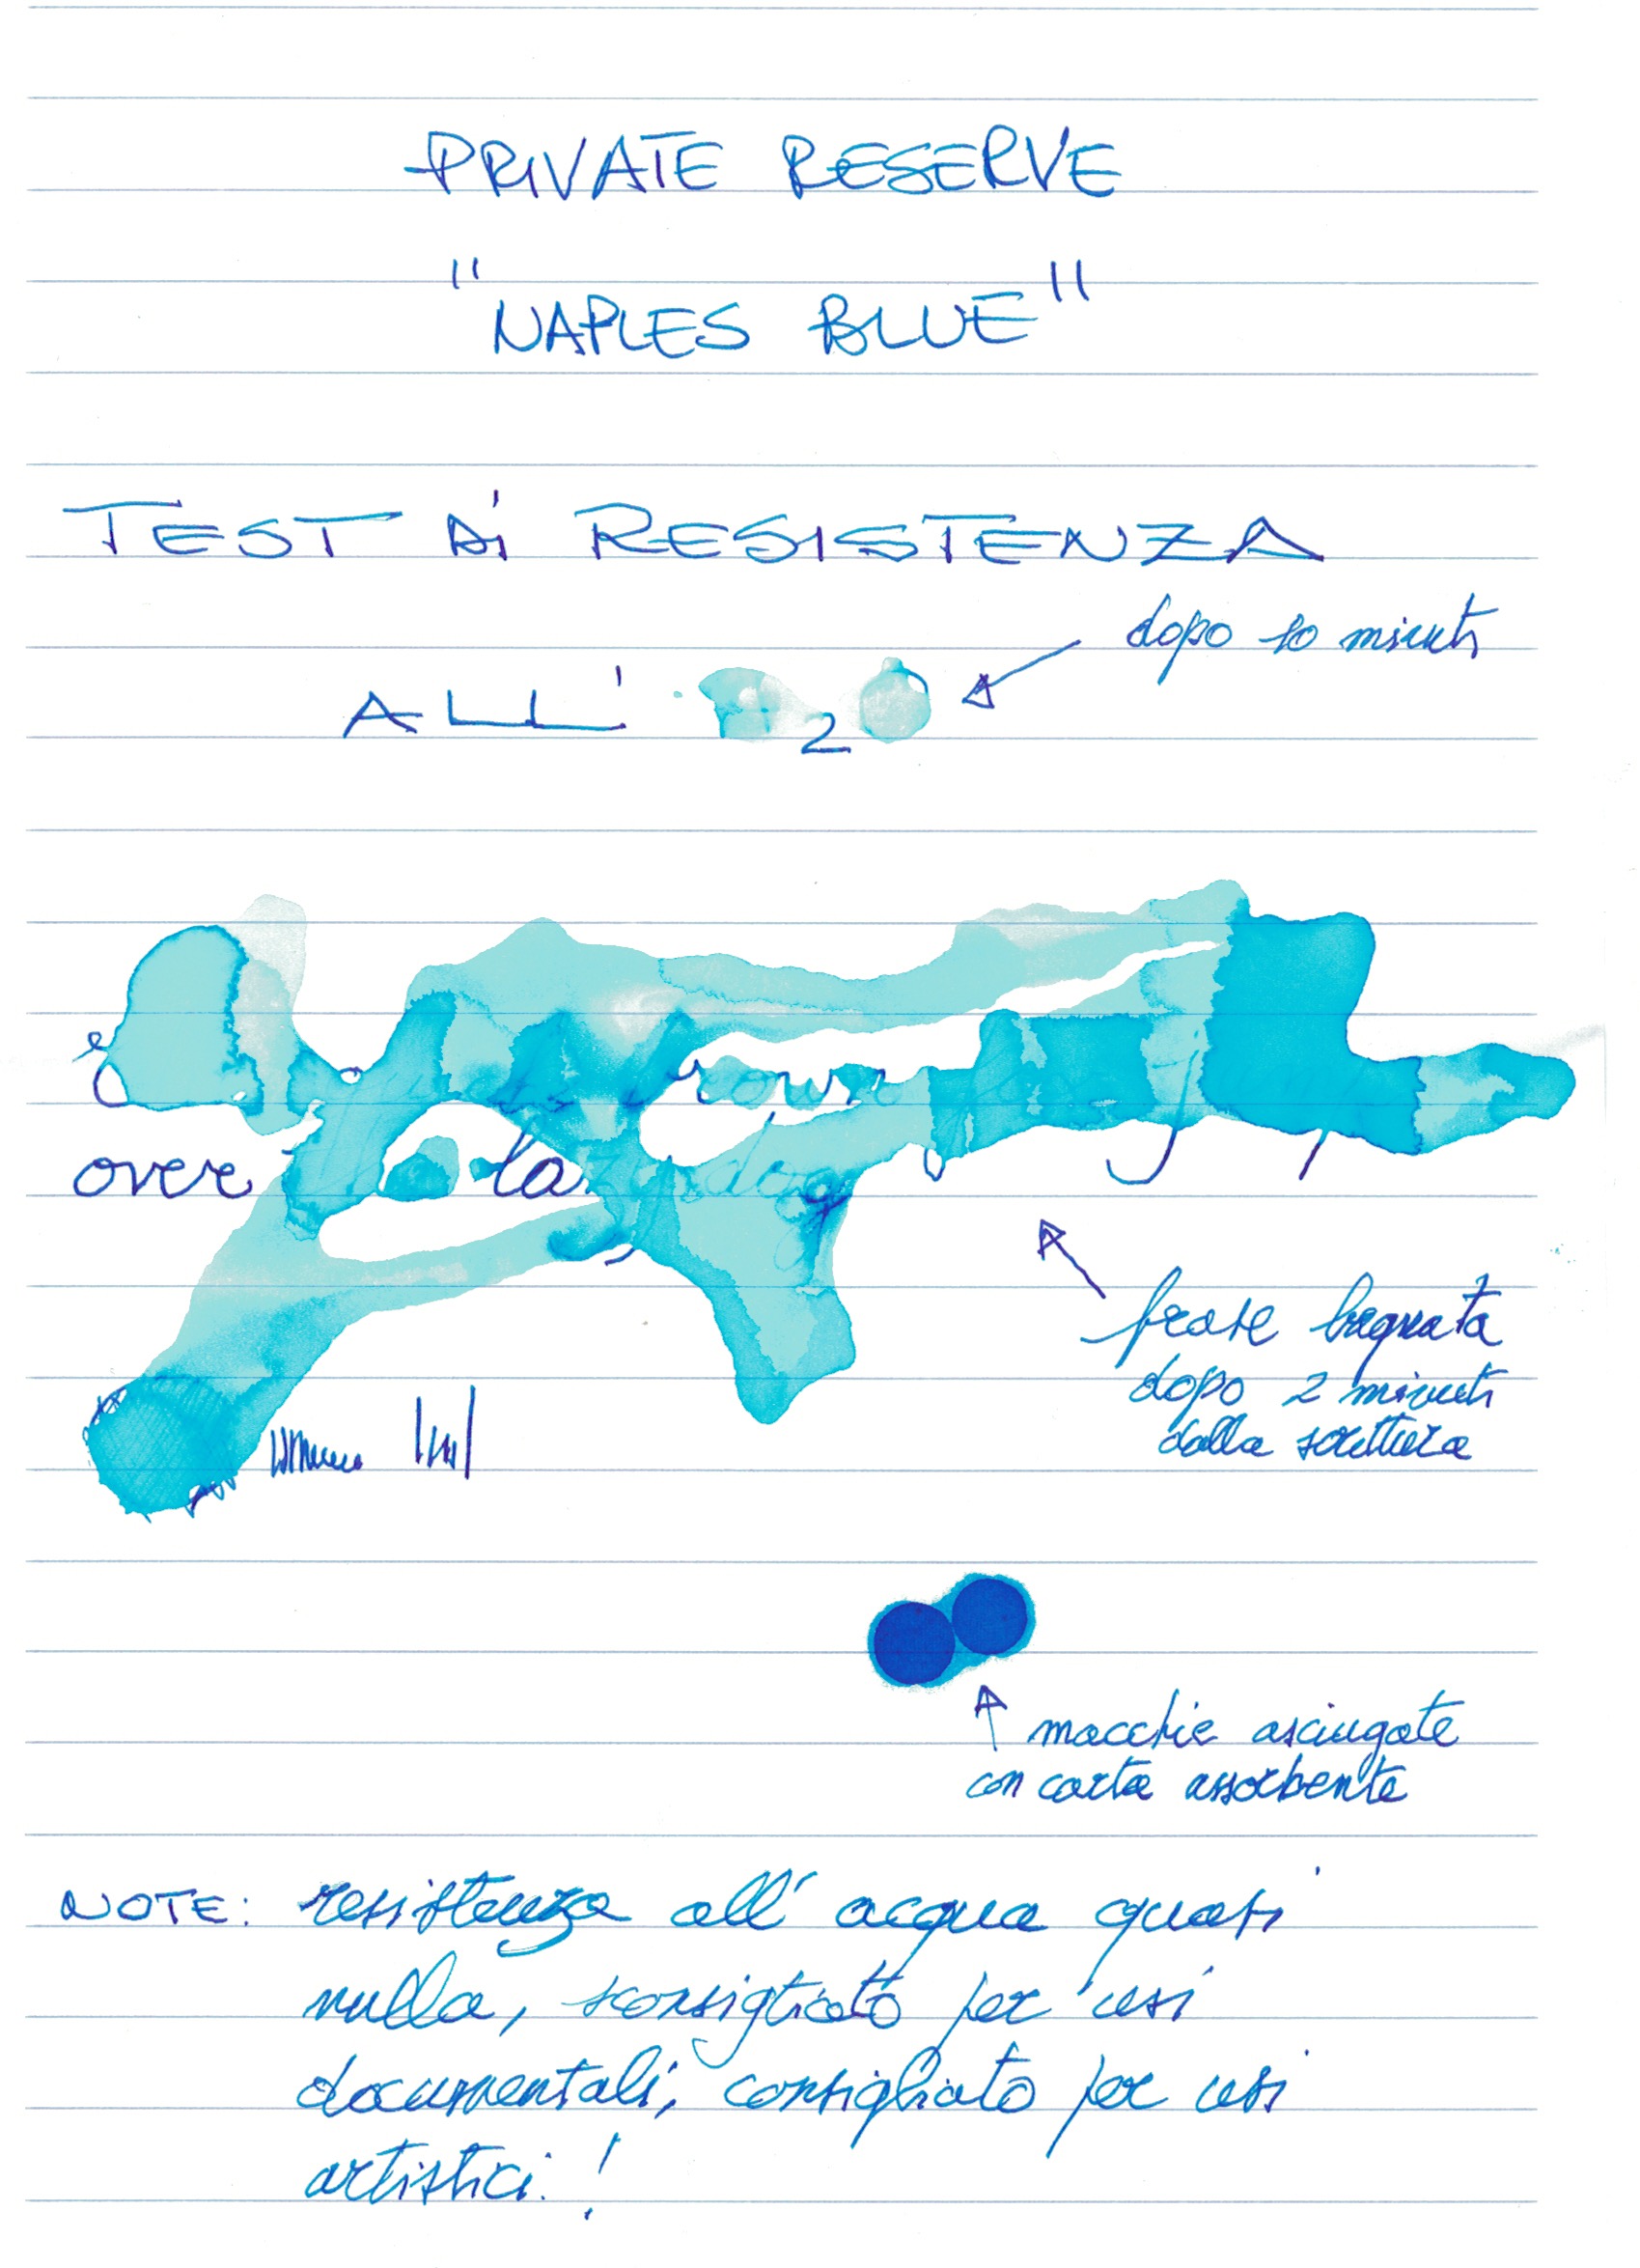 PRIVATE RESERVE
"NAPLES BLUE"
TEST di RESISTENZA
dopo 10 minuti
ALL' 2
rown
over la dog
frase bagnata
dopo 2 minuti
dalla scrittura
macchie asciugate
con carta assorbente
NOTE: resistenza all'acqua quasi
nulla, sconsigliato per usi
documentali, consigliato per usi
artistici!